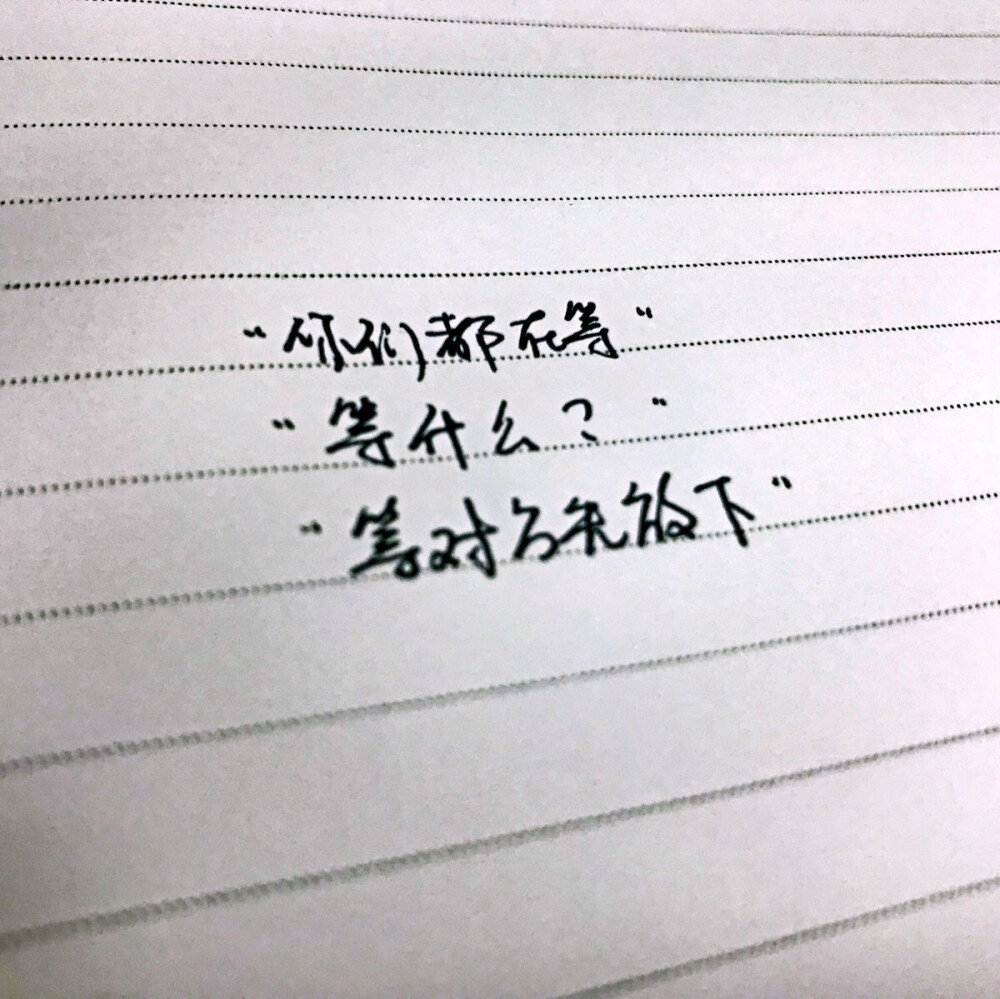 “你们都在等”
“等什么？”
“等对方先放下”